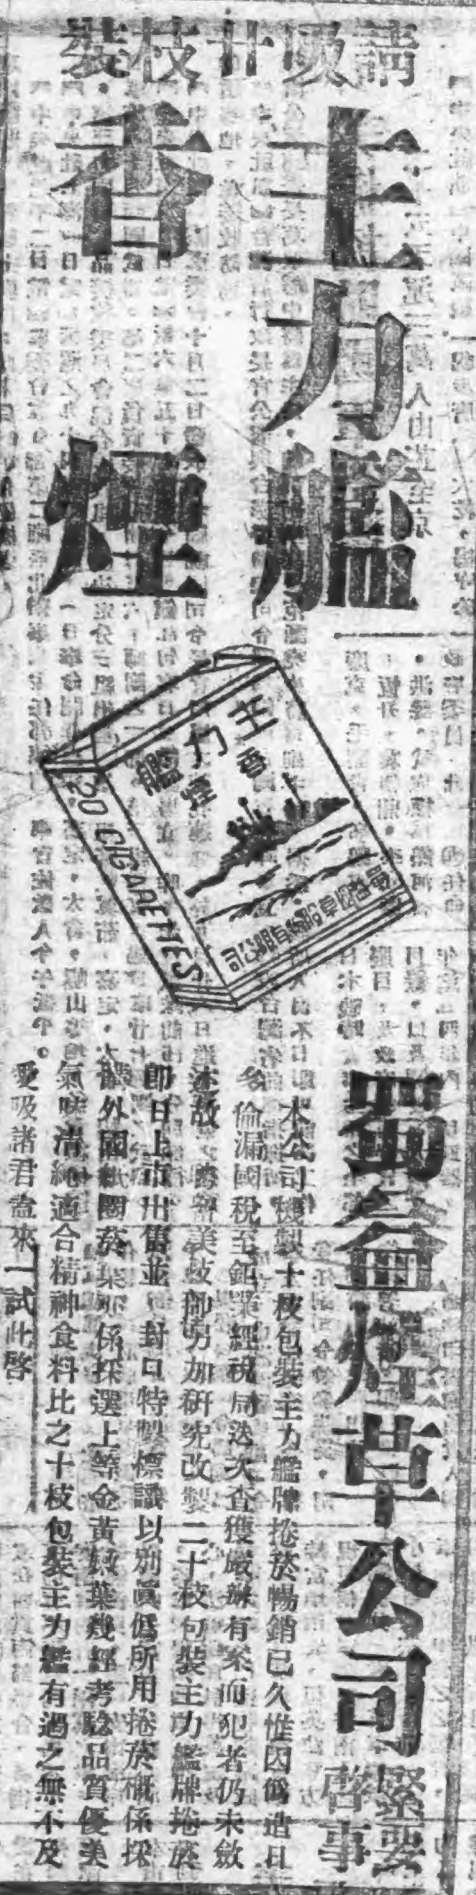 請吸廿枝裝
主力艦
香煙
主力艦
香煙
20 CIGARETTES
蜀益煙草股份有限公司
蜀益煙草公司
緊要啓事
本公司機製十枝包裝主力艦牌捲菸暢銷已久惟因僞造日
多偷漏國稅至鉅業經稅局迭次查獲嚴辦有案而犯者仍未斂
迹故 聘請美技師另加研究改製二十枝包裝主力艦牌捲菸
卽日上市出售並 封口特製標識以別眞僞所用捲菸 槪係採
 外國 菸葉 係採選上等金黃嫩葉幾經考驗品質優美
氣味清純適合精神食料比之十枝包裝主力艦有過之無不及
愛吸諸君盍來一試此啓